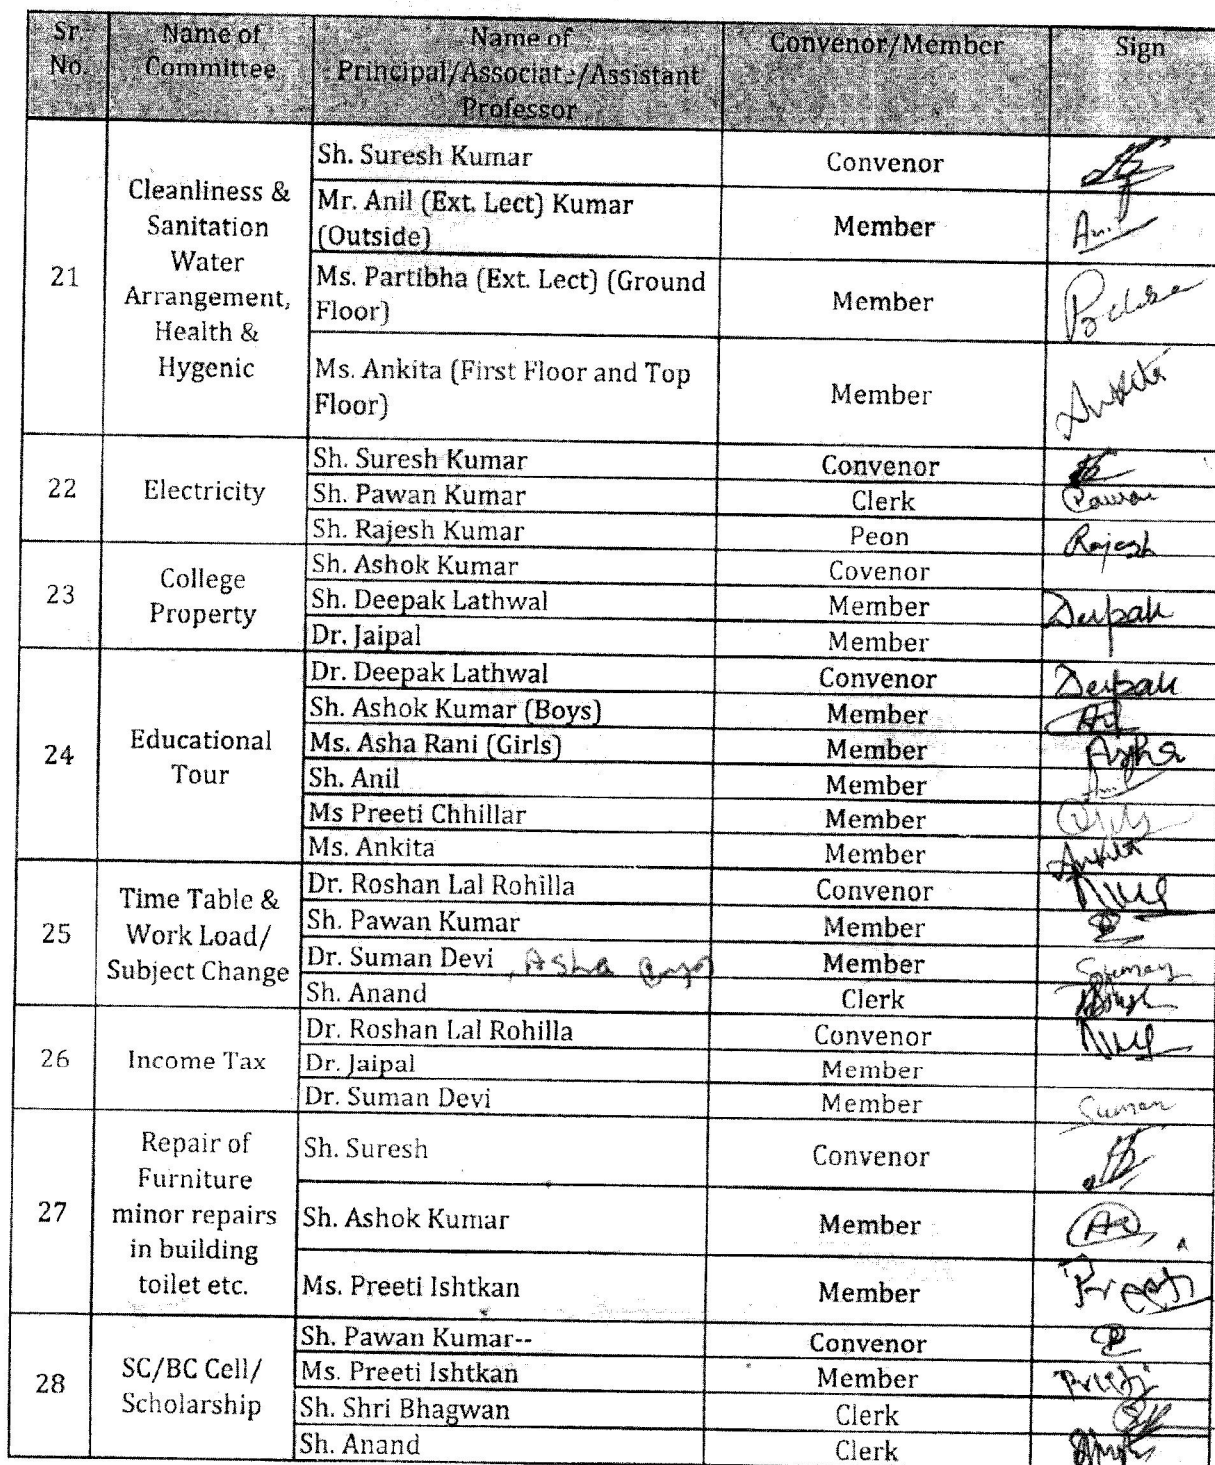 Sr. No. Name of Committee Name of Principal/Associate/Assistant Professor Convenor/Member Sign
21 Cleanliness & Sanitation Water Arrangement, Health & Hygenic
Sh. Suresh Kumar Convenor
Mr. Anil (Ext. Lect) Kumar (Outside) Member Anil
Ms. Partibha (Ext. Lect) (Ground Floor) Member
Ms. Ankita (First Floor and Top Floor) Member Ankita
22 Electricity
Sh. Suresh Kumar Convenor
Sh. Pawan Kumar Clerk Pawan
Sh. Rajesh Kumar Peon Rajesh
23 College Property
Sh. Ashok Kumar Covenor
Sh. Deepak Lathwal Member Deepak
Dr. Jaipal Member
24 Educational Tour
Dr. Deepak Lathwal Convenor Deepak
Sh. Ashok Kumar (Boys) Member
Ms. Asha Rani (Girls) Member Asha
Sh. Anil Member Anil
Ms Preeti Chhillar Member
Ms. Ankita Member Ankita
25 Time Table & Work Load/ Subject Change
Dr. Roshan Lal Rohilla Convenor
Sh. Pawan Kumar Member
Dr. Suman Devi , Asha Member Suman
Sh. Anand Clerk
26 Income Tax
Dr. Roshan Lal Rohilla Convenor
Dr. Jaipal Member
Dr. Suman Devi Member Suman
27 Repair of Furniture minor repairs in building toilet etc.
Sh. Suresh Convenor
Sh. Ashok Kumar Member
Ms. Preeti Ishtkan Member Preeti
28 SC/BC Cell/ Scholarship
Sh. Pawan Kumar-- Convenor
Ms. Preeti Ishtkan Member Preeti
Sh. Shri Bhagwan Clerk
Sh. Anand Clerk